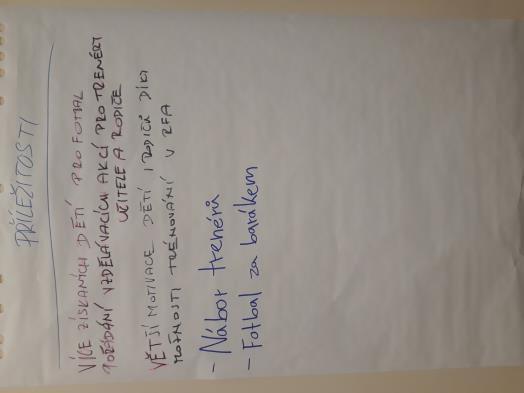 PŘÍLEŽITOSTI
VÍCE ZÍSKANÝCH DĚTÍ PRO FOTBAL
POŘÁDÁNÍ VZDĚLÁVACÍCH AKCÍ PRO TRENÉRY
UČITELE A RODIČE
VĚTŠÍ MOTIVACE DĚTÍ I RODIČŮ DÍKY
MOŽNOSTI TRÉNOVÁNÍ V RFA
- Nábor trenérů
- Fotbal za barákem